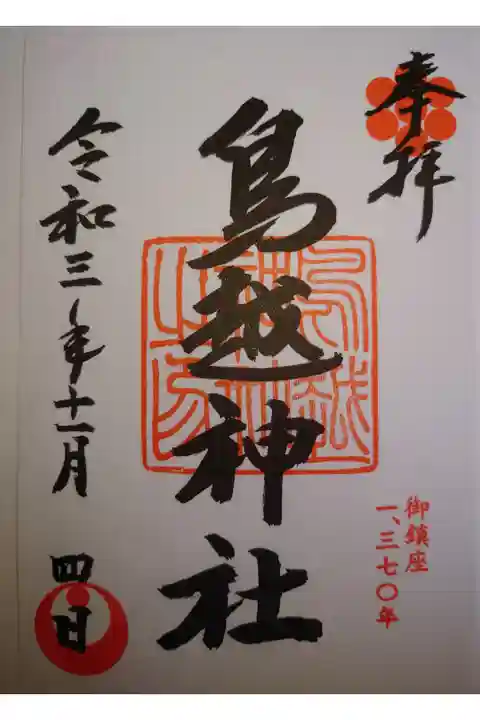 奉拝
鳥越神社
御鎮座
一、三七〇年
令和三年十一月
四日